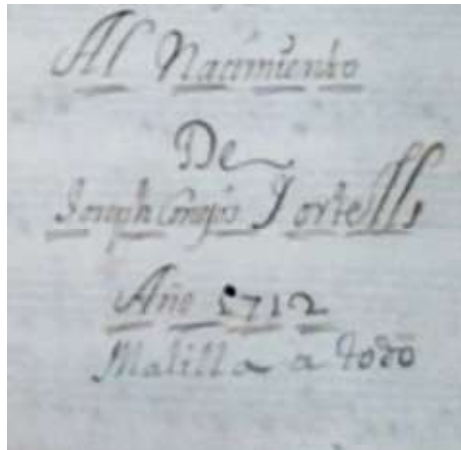 Al Nacimiento
De
Joseph Tortells
Año 1712
Malilla a todo